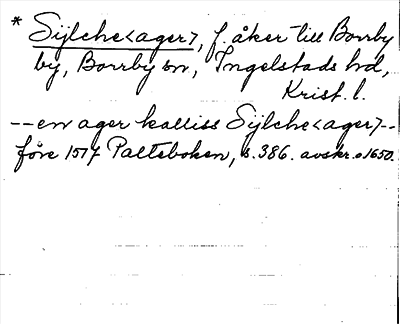 * Sÿlche<ager>, f. åker till Borrby
by, Borrby sn, Ingelstads hd,
Krist. l.
--en ager kalliss Sÿlche<ager>--
före 1517 Palteboken, s. 386. avskr. o 1650.